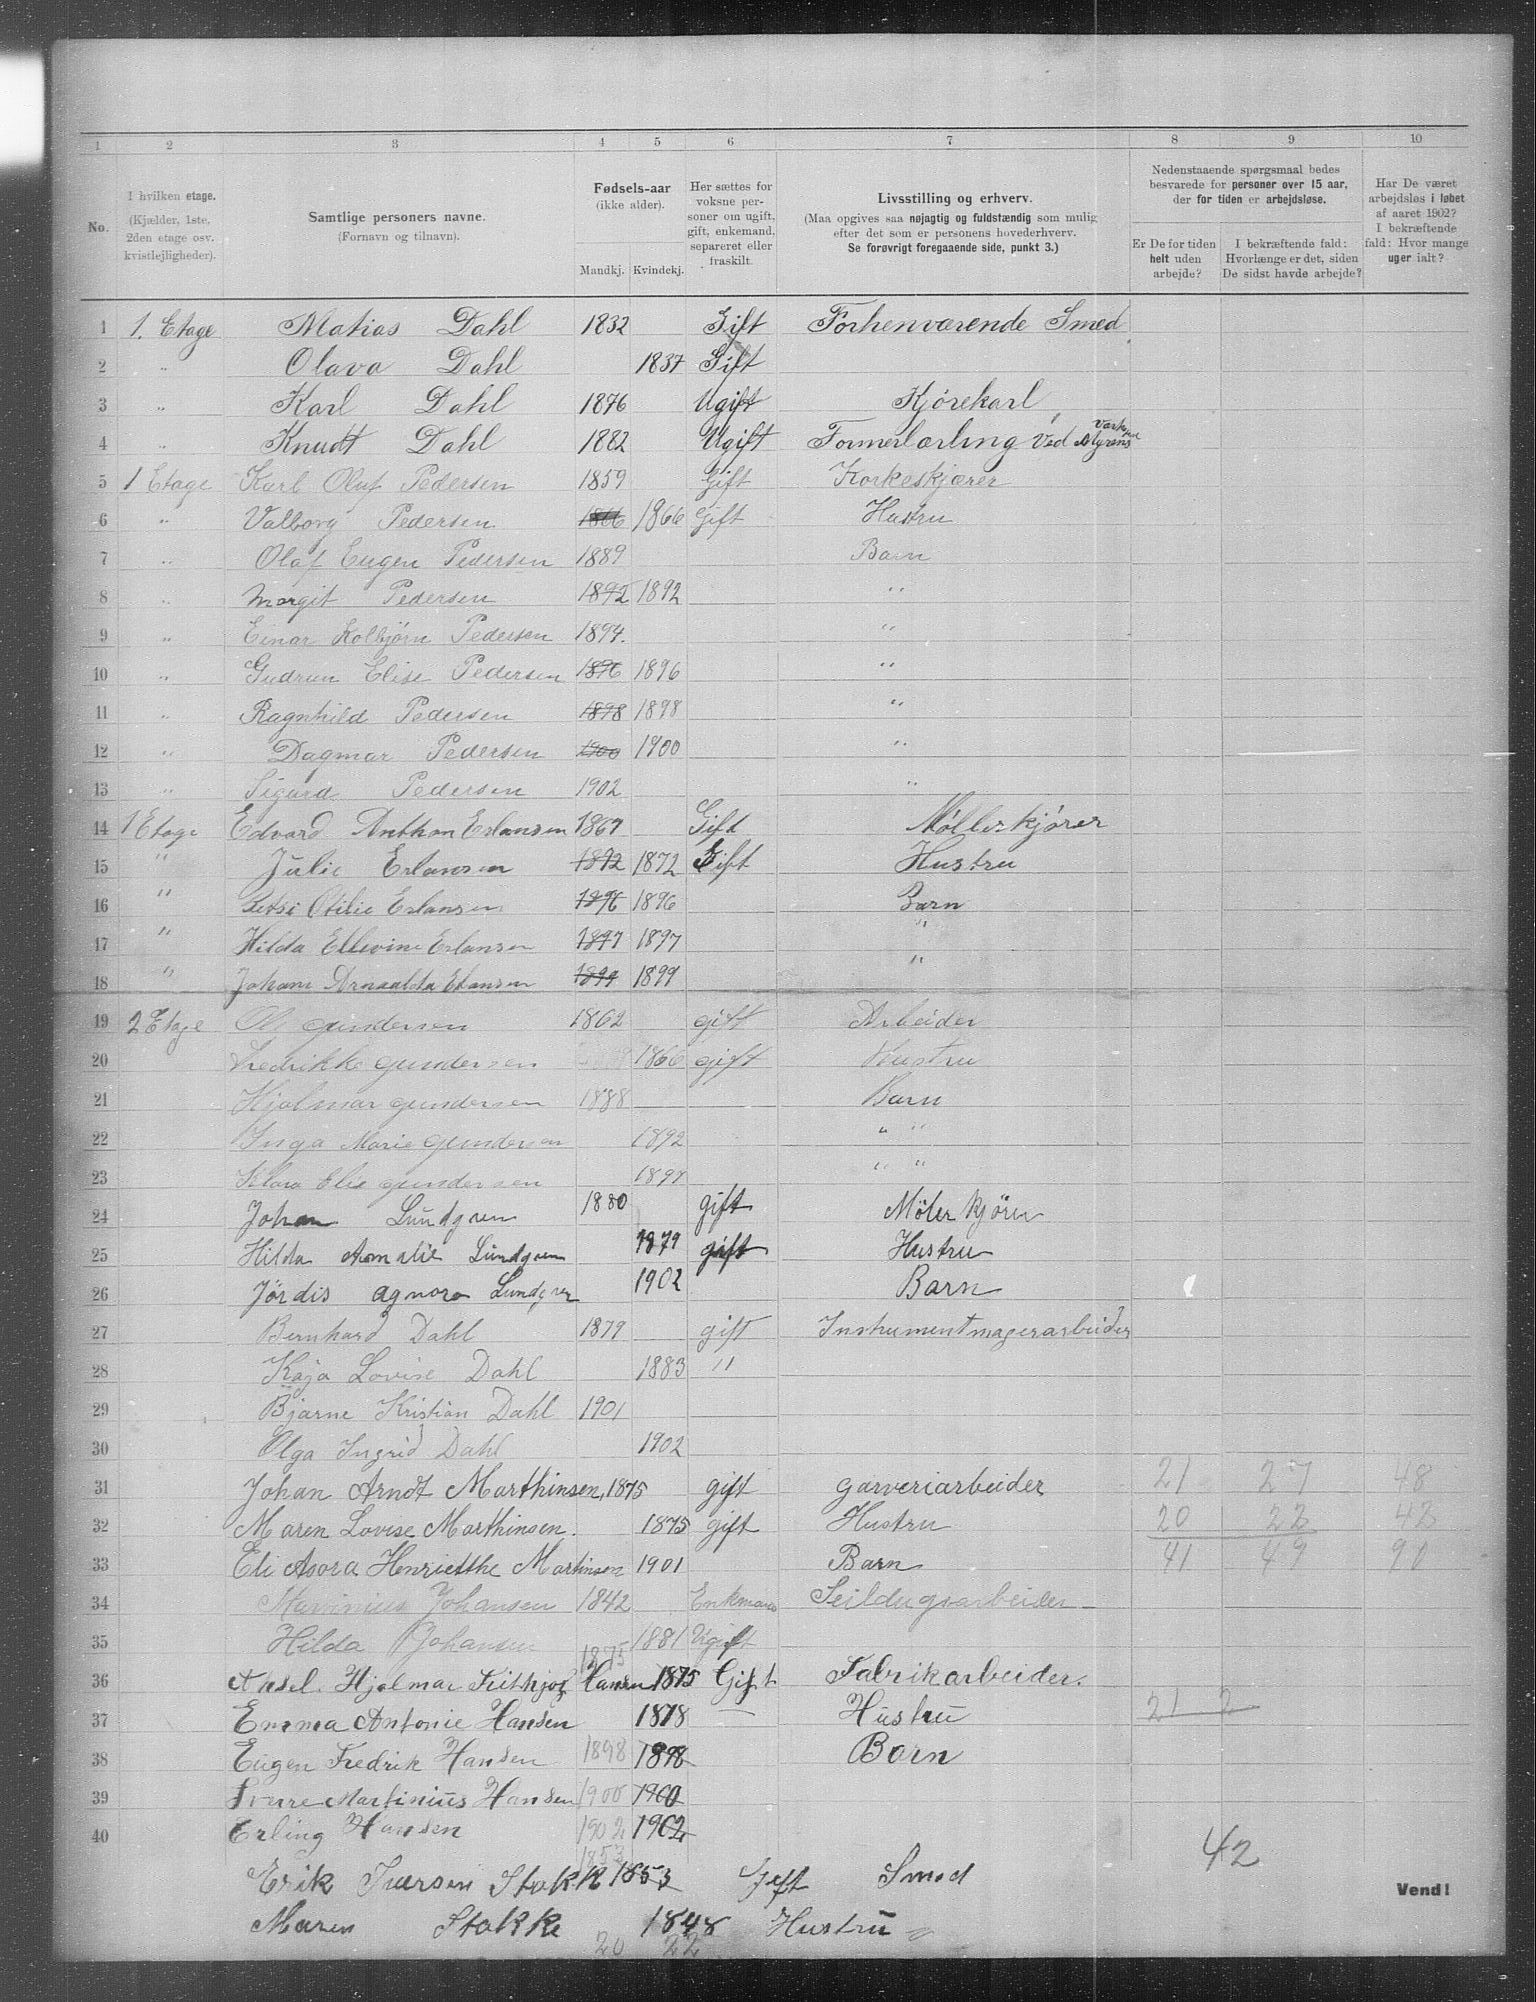 1 2 3 4 5 6 7 8 9 10
No.
I hvilken etage. (Kjælder, 1ste, 2den etage osv. kvistlejligheder).
Samtlige personers navne. (Fornavn og tilnavn).
Fødsels-aar (ikke alder). Mandkj. Kvindekj.
Her sættes for voksne personer om ugift, gift, enkemand, separeret eller fraskilt.
Livsstilling og erhverv. (Maa opgives saa nøjagtig og fuldstændig som mulig efter det som er personens hovederhverv. Se forøvrigt foregaaende side, punkt 3.)
Nedenstaaende spørgsmaal bedes besvarede for personer over 15 aar, der for tiden er arbejdsløse.
Er De for tiden helt uden arbejde?
I bekræftende fald: Hvorlænge er det, siden De sidst havde arbejde?
Har De været arbejdsløs i løbet af aaret 1902? I bekræftende fald: Hvor mange uger ialt?
1 1. Etage Matias Dahl 1832 Gift Forhenværende Smed
2 " Olava Dahl 1837 Gift
3 " Karl Dahl 1876 Ugift Kjørekarl
4 " Knudt Dahl 1882 Ugift Formerlærling ved Myrens
5 1 Etage Karl Oluf Pedersen 1859 Gift Korkeskjærer
6 " Valborg Pedersen 1866 1866 Gift Hustru
7 " Olaf Eugen Pedersen 1889 Barn
8 " Margit Pedersen 1892 1892 "
9 " Einar Kolbjørn Pedersen 1894. "
10 " Gudrun Elise Pedersen 1896 1896 "
11 " Ragnhild Pedersen 1898 1898 "
12 " Dagmar Pedersen 1900 1900 "
13 " Sigurd Pedersen 1902 "
14 1 Etage Edvard Anthon Erlansen 1867 Gift Møllerkjører
15 " Julie Erlansen 1872 1872 Gift Hustru
16 " Betsi Otilie Erlansen 1896 1896 Barn
17 " Hilda Ellevine Erlansen 1897 1897 "
18 " Johane Arnaalda Elansen 1899 1899 "
19 2 Etage Ole Gundersen 1862 gift Arbeider
20 Fredrikke Gundersen 1866 gift Hustru
21 Hjalmar Gundersen 1888 Barn
22 Inga Marie Gundersen 1892 " "
23 Klara Elis Gundersen 1897 " "
24 Johan Lundgren 1880 gift Møler kjörer
25 Hilda Amalie Lundgren 1879 gift Hustru
26 Jördis Agnora Lundgren 1902 Barn
27 Bernhard Dahl 1879 gift Instrumentmagerarbeider
28 Kaja Lovise Dahl 1883 "
29 Bjarne Kristian Dahl 1901
30 Olga Ingrid Dahl 1902
31 Johan Arndt Marthinsen, 1875 gift Garveriarbeider 21 27 48
32 Maren Lovise Marthinsen. 1875 gift Hustru 20 22 42
33 Eli Asora Henriethe Martinsen 1901 Barn 41 49 90
34 Marinius Johansen 1842 Enkmand Seildugsarbeider
35 Hilda Johansen 1881 Ugift
36 Aksel. Hjalmar Frithjof Hansen 1875 1875 Gift Fabrikarbeider.
37 Emma Antonie Hansen 1878 — Hustru 21 2
38 Eugen Fredrik Hansen 1898 1898 Barn
39 Sverre Martinius Hansen 1900 1900
40 Erling Hansen 1902 1902
42
Erik Iversen Stokke 1853 1853 Gift Smed
Vend!
Maren Stokke 1848 Hustru
20 22